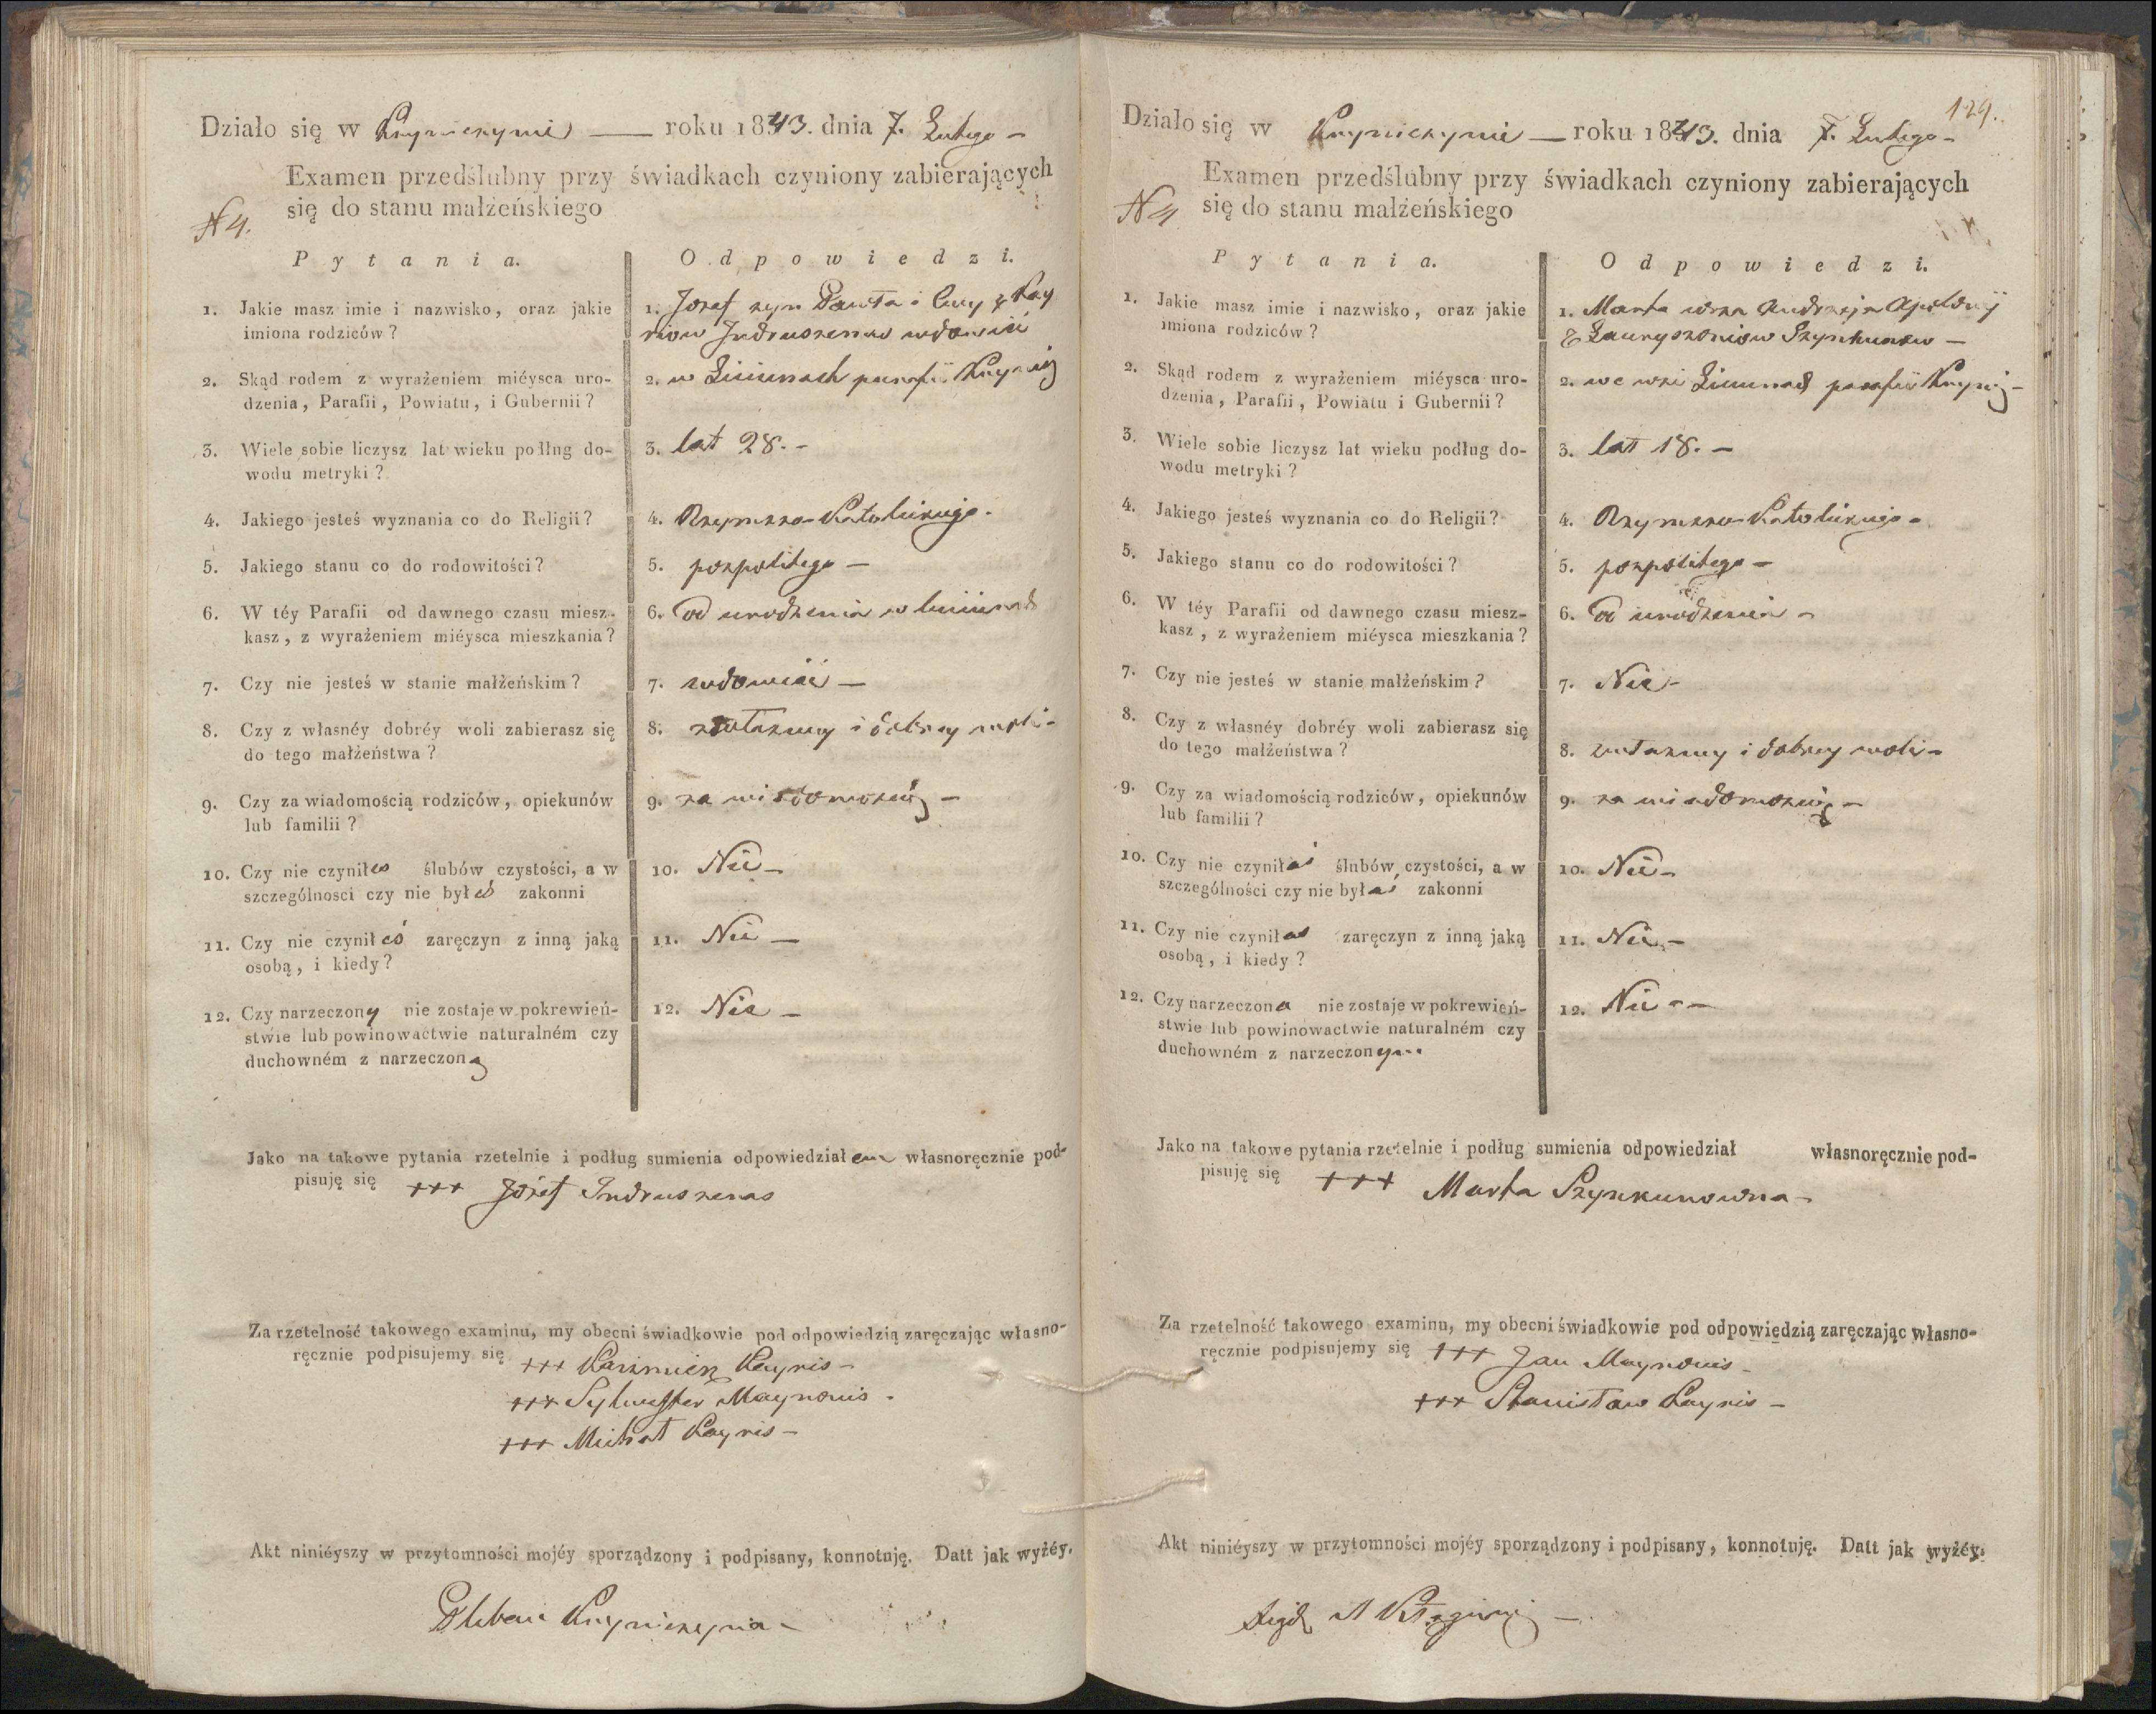 Działo się w — roku 1843. dnia 7. Lutego –
Examen przedślubny przy świadkach czyniony zabierających
się do stanu małżeńskiego
N 4.
Pytania.
Odpowiedzi.
1. Jakie masz imie i nazwisko, oraz jakie
imiona rodziców?
1. Jozef syn Pawła i Ewy z
wdowiec
2. Skąd rodem z wyrażeniem miéysca uro-
dzenia, Parafii, Powiatu, i Gubernii?
2. w parafii
3. Wiele sobie liczysz lat wieku podług do-
wodu metryki?
3. lat 28. –
4. Jakiego jesteś wyznania co do Religii?
4. Rzymsko Katolickiego –
5. Jakiego stanu co do rodowitości?
5. pospolitego –
6. W téy Parafii od dawnego czasu miesz-
kasz, z wyrażeniem miéysca mieszkania?
6. od urodzenia w
7. Czy nie jesteś w stanie małżeńskim?
7. wdowiec –
8. Czy z własnéy dobréy woli zabierasz się
do tego małżeństwa?
8. z własney i dobrey woli –
9. Czy za wiadomością rodziców, opiekunów
lub familii?
9. za wiadomością –
10. Czy nie czyniłes ślubów czystości, a w
szczególnosci czy nie byłeś zakonni
10. Nie –
11. Czy nie czyniłeś zaręczyn z inną jaką
osobą, i kiedy?
11. Nie –
12. Czy narzeczony nie zostaje w pokrewień-
stwie lub powinowactwie naturalném czy
duchowném z narzeczoną
12. Nie –
Jako na takowe pytania rzetelnie i podług sumienia odpowiedziałem własnoręcznie pod-
pisuję się +++ Józef Indruszenas
Za rzetelność takowego examinu, my obecni świadkowie pod odpowiedzią zaręczając własno-
ręcznie podpisujemy się +++ Kazimierz Kayris –
+++ Sylwester Maynonis –
+++ Michał Kayris –
Akt niniéyszy w przytomności mojéy sporządzony i podpisany, konnotuję. Datt jak wyżéy.
Pleban
129.
Działo się w — roku 1843. dnia 7. Lutego –
Examen przedślubny przy świadkach czyniony zabierających
się do stanu małżeńskiego
N 4
Pytania.
Odpowiedzi.
1. Jakie masz imie i nazwisko, oraz jakie
imiona rodziców?
1. Marta Andrzeja
z –
2. Skąd rodem z wyrażeniem miéysca uro-
dzenia, Parafii, Powiatu i Gubernii?
2. we wsi parafii
3. Wiele sobie liczysz lat wieku podług do-
wodu metryki?
3. lat 18. –
4. Jakiego jesteś wyznania co do Religii?
4. Rzymsko Katolickiego –
5. Jakiego stanu co do rodowitości?
5. pospolitego –
6. W téy Parafii od dawnego czasu miesz-
kasz, z wyrażeniem miéysca mieszkania?
6. od urodzenia –
7. Czy nie jesteś w stanie małżeńskim?
7. Nie –
8. Czy z własnéy dobréy woli zabierasz się
do tego małżeństwa?
8. z własney i dobrey woli –
9. Czy za wiadomością rodziców, opiekunów
lub familii?
9. za wiadomością –
10. Czy nie czyniłaś ślubów czystości, a w
szczególności czy nie byłaś zakonni
10. Nie –
11. Czy nie czyniłas zaręczyn z inną jaką
osobą, i kiedy?
11. Nie –
12. Czy narzeczona nie zostaje w pokrewień-
stwie lub powinowactwie naturalném czy
duchowném z narzeczonym
12. Nie – –
Jako na takowe pytania rzetelnie i podług sumienia odpowiedział własnoręcznie pod-
pisuję się +++ Marta Szynkunowna –
Za rzetelność takowego examinu, my obecni świadkowie pod odpowiedzią zaręczając własno-
ręcznie podpisujemy się +++ Jan Maynonis –
+++ Stanisław Kayris –
Akt niniéyszy w przytomności mojéy sporządzony i podpisany, konnotuję. Datt jak wyżéy.